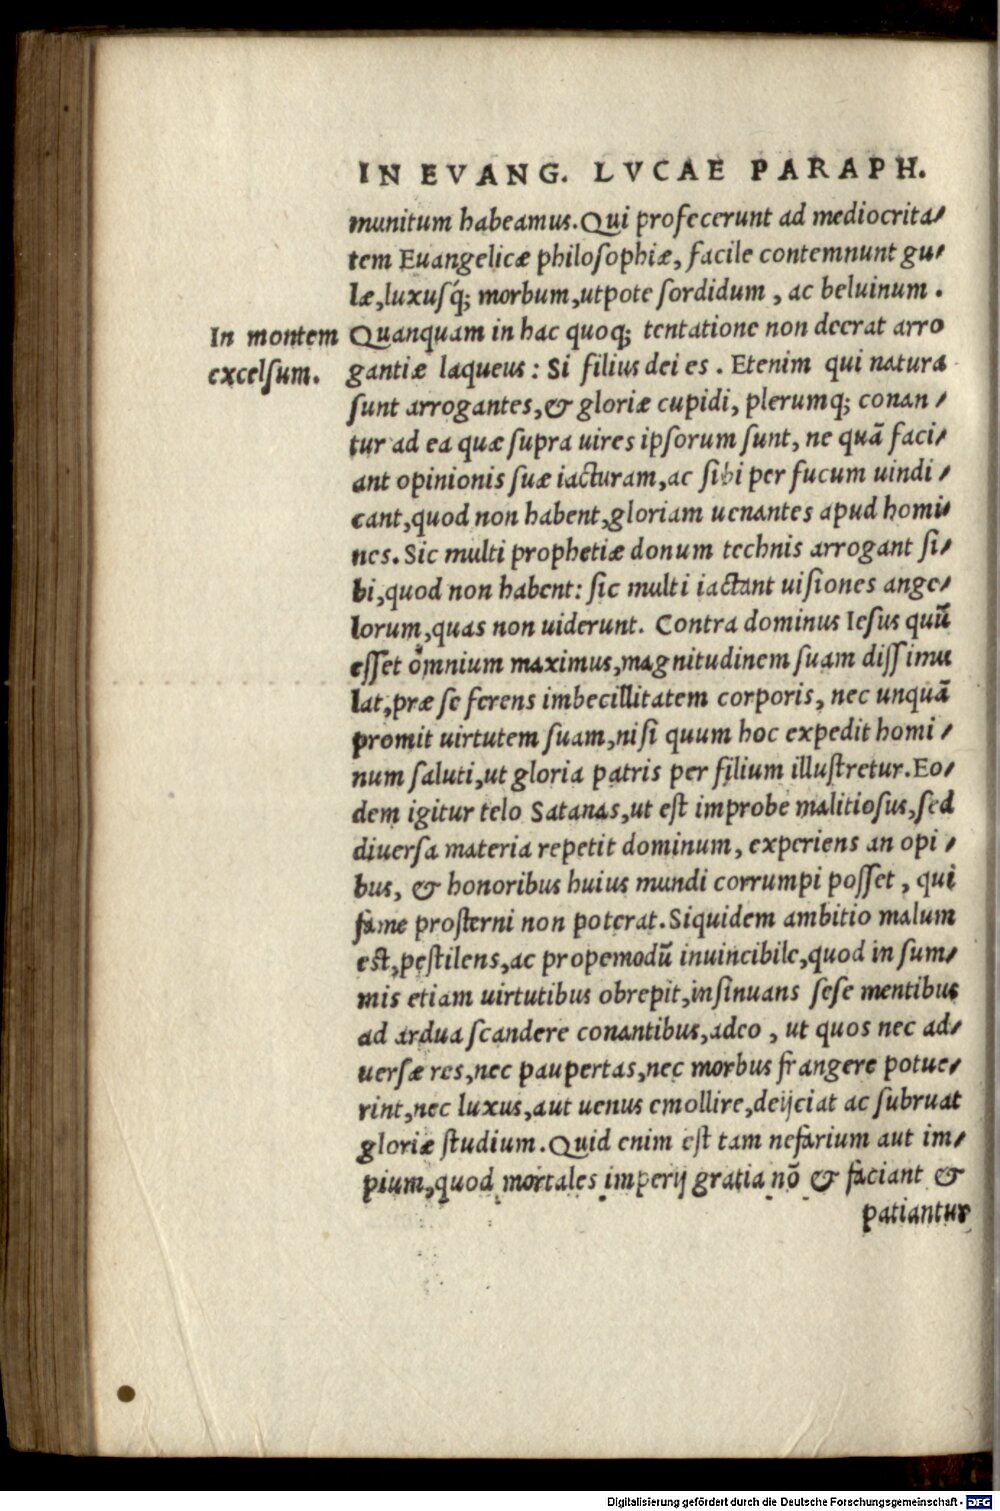 IN EVANG. LVCAE PARAPH.
munitum habeamus. Qui profecerunt ad mediocrita⸗
tem Euangelicæ philosophiæ, facile contemnunt gu⸗
læ, luxusq́; morbum, utpote sordidum, ac beluinum.
In montem
excelsum.
Quanquam in hac quoq; tentatione non deerat arro
gantiæ laqueus: Si filius dei es. Etenim qui natura
sunt arrogantes, & gloriæ cupidi, plerumq; conan⸗
tur ad ea quæ supra uires ipsorum sunt, ne quã faci⸗
ant opinionis suæ iacturam, ac sibi per fucum uindi⸗
cant, quod non habent, gloriam uenantes apud homi⸗
nes. Sic multi prophetiæ donum technis arrogant si⸗
bi, quod non habent: sic multi iactant uisiones ange⸗
lorum, quas non uiderunt. Contra dominus Iesus quũ
esset omnium maximus, magnitudinem suam dissimu
lat, præ se ferens imbecillitatem corporis, nec unquã
promit uirtutem suam, nisi quum hoc expedit homi⸗
num saluti, ut gloria patris per filium illustretur. Eo⸗
dem igitur telo Satanas, ut est improbe malitiosus, sed
diuersa materia repetit dominum, experiens an opi⸗
bus, & honoribus huius mundi corrumpi posset, qui
fame prosterni non poterat. Siquidem ambitio malum
est, pestilens, ac propemodũ inuincibile, quod in sum⸗
mis etiam uirtutibus obrepit, insinuans sese mentibus
ad ardua scandere conantibus, adeo, ut quos nec ad⸗
uersæ res, nec paupertas, nec morbus frangere potue⸗
rint, nec luxus, aut uenus emollire, deijciat ac subruat
gloriæ studium. Quid enim est tam nefarium aut im⸗
pium, quod mortales imperij gratia nõ & faciant &
patiantur
Digitalisierung gefördert durch die Deutsche Forschungsgemeinschaft - DFG